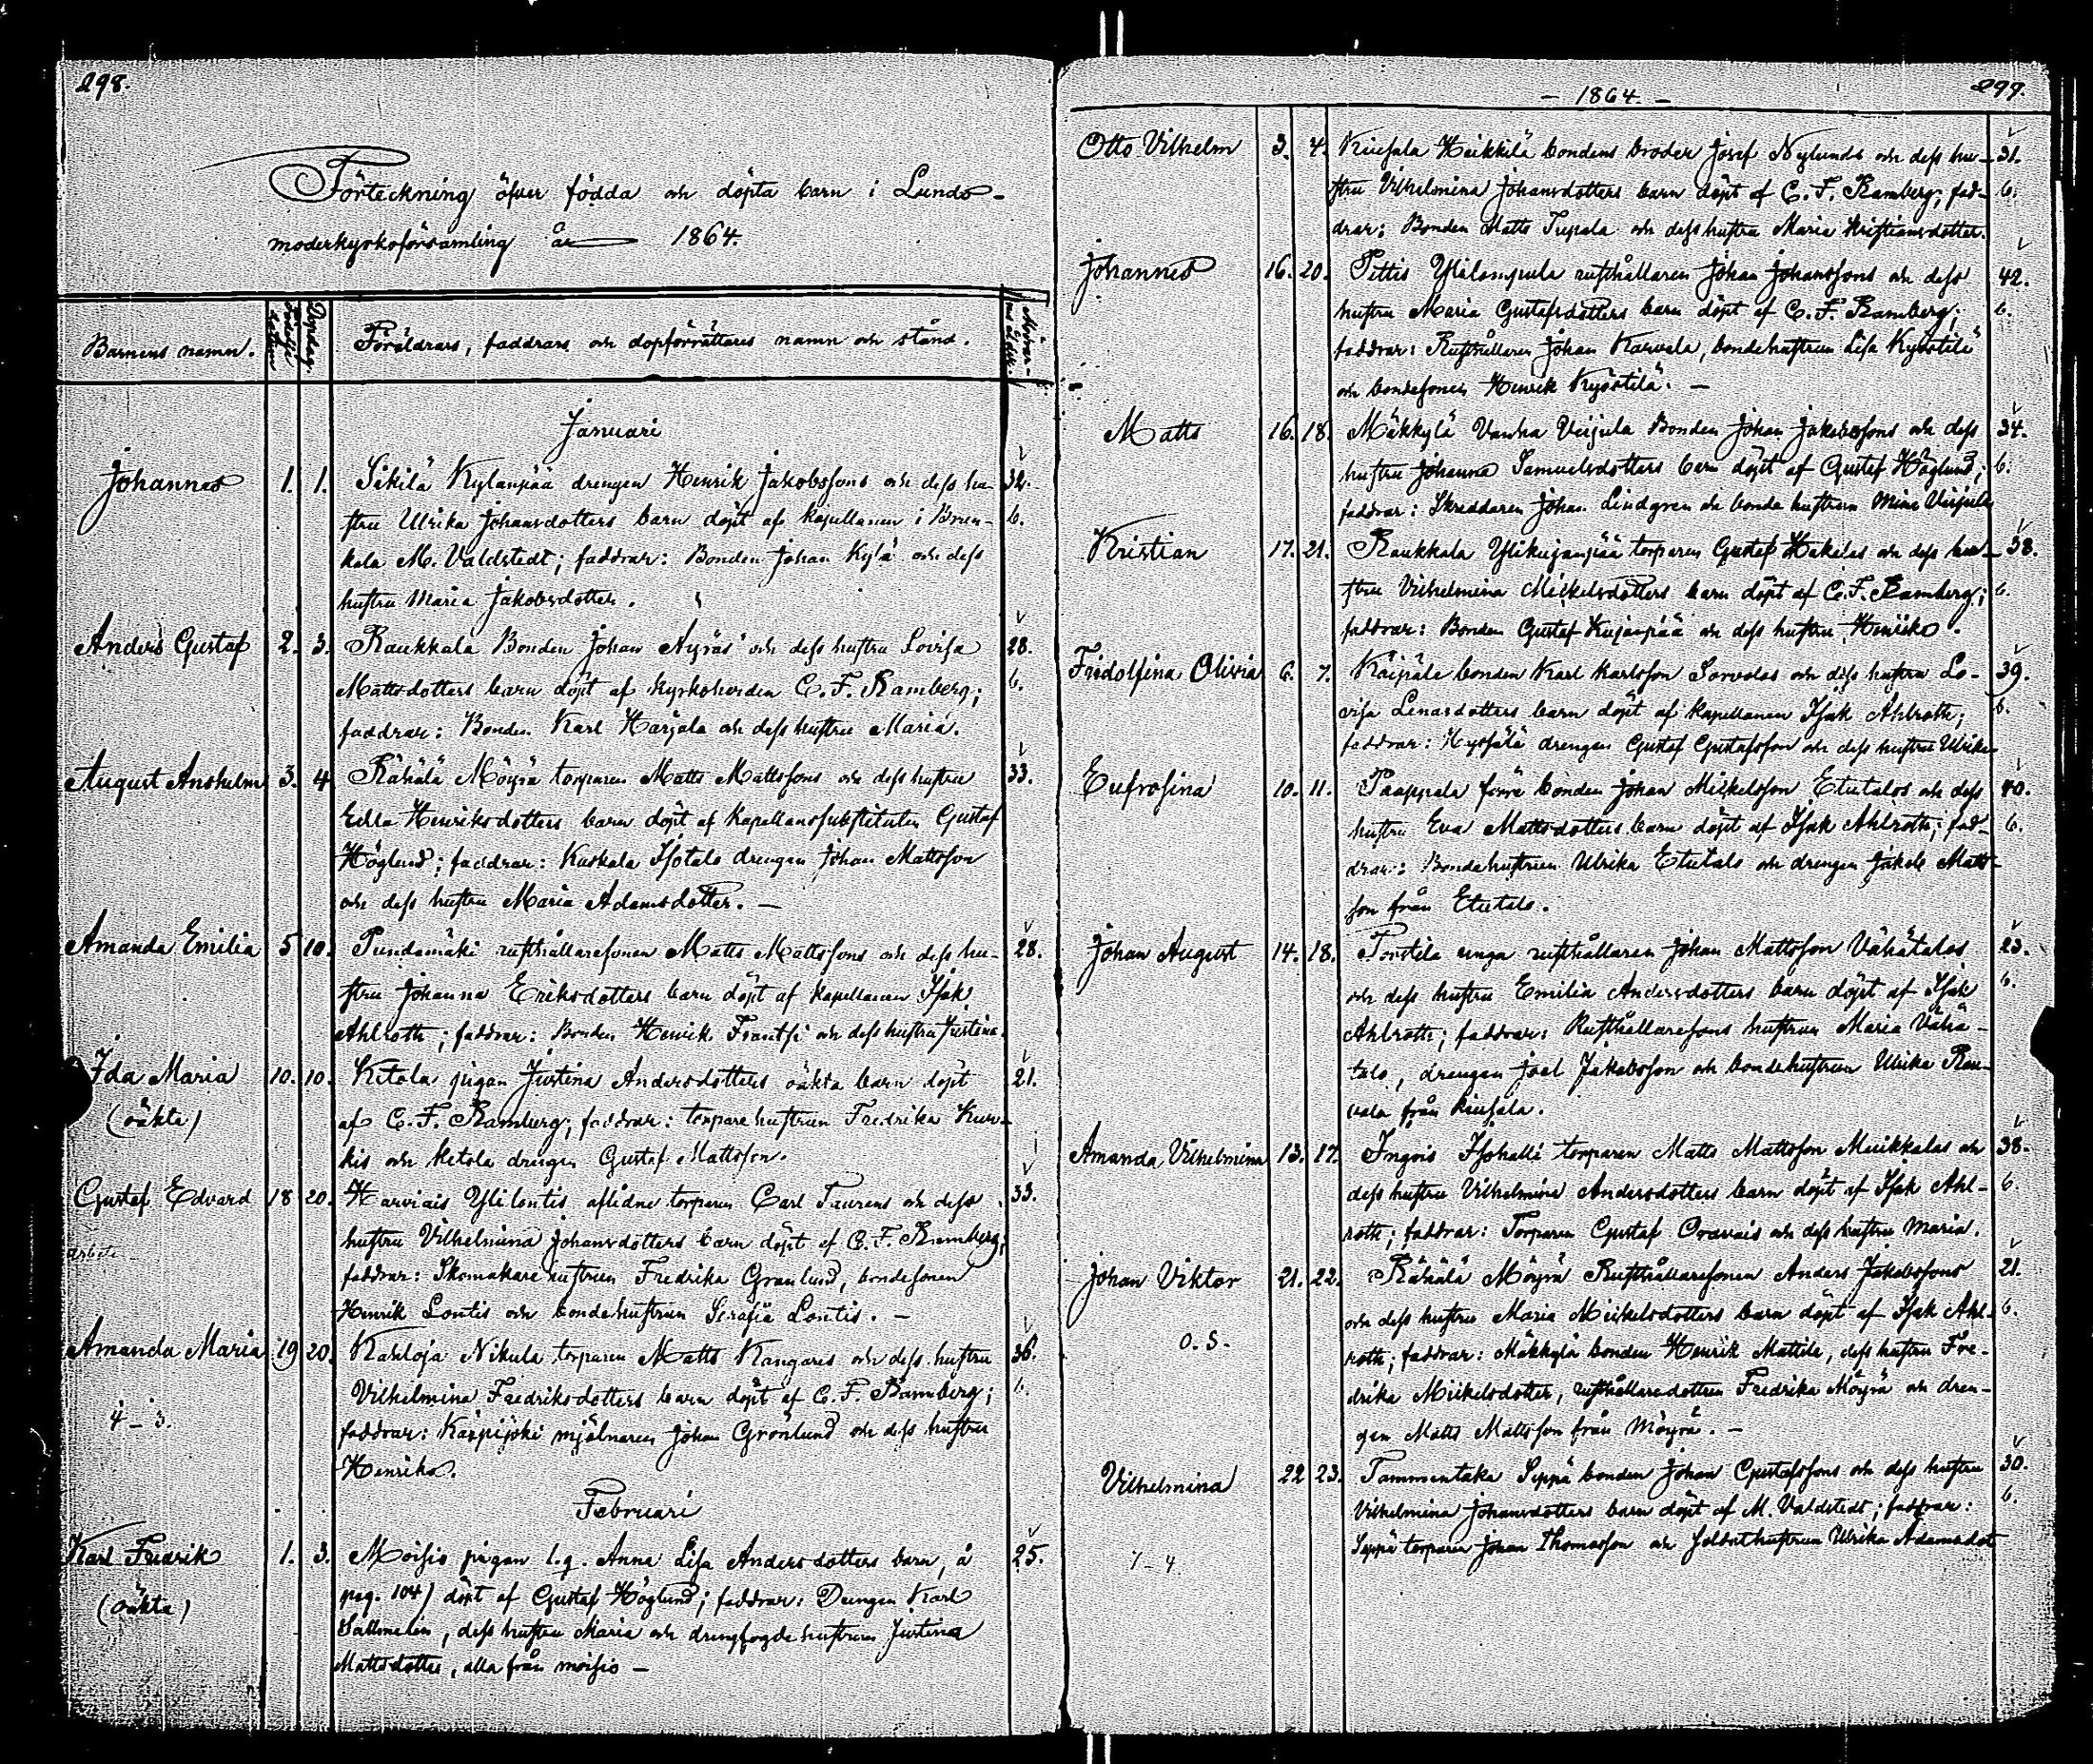 298.
Förteckning öfver födda och döpta barn i Lundo-
moderkyrkoförsamling år 1864.
Barnens namn. Födelse datum Dopdag. Föräldrars, faddrars och dopförrättares namn och stånd. Modrens ålder.
Januari
Johannes 1. 1. Sikilä Kylänpää drengen Henrik Jakobssons och dess hu- 32.
stru Ulrika Johansdotters barn döpt af kapellanen i Brun- b.
kala M. Valdstedt; faddrar: Bonden Johan Kylä och dess
hustru Maria Jakobsdotter.
Anders Gustaf 2. 3. Raukkala Bonden Johan Äyräs och dess hustru Lovisa 28.
Mattsdotters barn döpt af kyrkoherden C. F. Ramberg; b.
faddrar: Bonden Karl Harjala och dess hustru Maria.
August Anshelm 3. 4 Rähälä Möyrä torparen Matts Mattssons och dess hustru 33.
Edla Henriksdotters barn döpt af kapellanssubstituten Gustaf
Höglund; faddrar: Kuskala Isotalo drengen Johan Mattsson
och dess hustru Maria Adamsdotter. —
Amanda Emilia 5 10. Pundamäki rusthållaresonen Matts Mattssons och dess hu- 28.
stru Johanna Eriksdotters barn döpt af kapellanen Isak
Ahlroth; faddrar: Bonden Henrik Frantsi och dess hustru Justina.
Ida Maria 10. 10. Ketola pigan Justina Andersdotters oäkta barn döpt 21.
(oäkta) af C. F. Ramberg; faddrar: torparehustrun Fredrika Kur-
kis och Ketola drengen Gustaf Mattsson.
Gustaf Edvard 18 20. Harviais Yli lontis aflidne torparen Carl Taurens och dess 33.
hustru Vilhelmina Johansdotters barn döpt af C. F. Ramberg;
faddrar: Skomakare hustrun Fredrika Granlund, bondesonen
Henrik Lontis och bondehustrun Serafia Lontis. —
Amanda Maria 19 20. Kahloja Nikula torparen Matts Kangares och dess hustru 36.
Vilhelmina Fredriksdotters barn döpt af C. F. Ramberg; b.
4 – 3. faddrar: Kärpijoki mjölnaren Johan Grönlund och dess hustru
Henrika.
Februari
Karl Fredrik 1. 3. Moisio pigan l. q. Anna Lisa Andersdotters barn, å 25.
(oäkta) pag. 104) döpt af Gustaf Höglund; faddrar: Drengen Karl
Sällmelin, dess hustru Maria och drengfogdehustrun Justina
Mattsdotter, alla från moisio —
— 1864. — 299.
Otto Vilhelm 3. 4. Kiusala Heikkilä bondens broder Josef Nylunds och dess hu- 31.
stru Vilhelmina Johansdotters barn döpt af C. F. Ramberg; fad- b.
drar: Bonden Matts Tupala och dess hustru Maria Kristiansdotter.
Johannes 16. 20. Pettis Ylilompula rusthållaren Johan Johanssons och dess 42.
hustru Maria Gustafsdotters barn döpt af C. F. Ramberg; b.
faddrar: Rusthållaren Johan Karvala, bondehustrun Lisa Kyöstilä
och bondesonen Henrik Kyöstilä. —
Matts 16. 18. Mäkkylä Vanha Veijula Bonden Johan Jakobssons och dess 34.
hustru Johanna Samuelsdotters barn döpt af Gustaf Höglund; b.
faddrar: Skreddaren Johan Lindgren och bonde hustrun Mina Veijula
Kristian 17. 21. Raukkala Ylikujanpää torparen Gustaf Hakalas och dess hu- 38.
stru Vilhelmina Mickelsdotters barn döpt af C. F. Ramberg; b.
faddrar: Bonden Gustaf Kujanpää och dess hustru Henrika.
Fridolfina Olivia 6. 7. Käipäle bonden Karl Karlsson Sorvalas och dess hustru Lo- 39.
visa Lenasdotters barn döpt af kapellanen Isak Ahlroth; b.
faddrar: Hypsälä drengen Gustaf Gustafsson och dess hustru Ulrika
Eufrosina 10. 11. Paappala förre bonden Johan Mickelsson Etutalos och dess 40.
hustru Eva Mattsdotters barn döpt af Isak Ahlroth; fad- b.
drar: Bondehustrun Ulrika Etutalo och drengen Jakob Matt-
son från Etutalo.
Johan August 14. 18. Tortila unga rusthållaren Johan Mattsson Vähätalos 23.
och dess hustru Emilia Andersdotters barn döpt af Isak b.
Ahlroth; faddrar: Rusthållaresons hustrun Maria Vähä-
talo, drengen Joel Jakobsson och bondehustrun Ulrika Rau-
vala från Kiusala.
Amanda Vilhelmina 13. 17. Ingois Isohalli torparen Matts Mattsson Muikkalas och 38.
dess hustru Vilhelmina Andersdotters barn döpt af Isak Ahl- b.
roth; faddrar: Torparen Gustaf Oravais och dess hustru Maria.
Johan Viktor 21. 22. Rähälä Möyrä Rusthållaresonen Anders Jakobssons 21.
och dess hustru Maria Mickelsdotters barn döpt af Isak Ahl- b.
O. S. roth; faddrar: Mäkkylä bonden Henrik Mattila, dess hustru Fre-
drika Mickelsdotter, rusthållaredottren Fredrika Möyrä och dren-
gen Matts Mattsson från Möyrä. —
Vilhelmina 22 23. Tammentaka Seppä bonden Johan Gustafssons och dess hustru 30.
Vilhelmina Johansdotters barn döpt af M. Valdstedt; faddrar: b.
7 – 4. Seppä torparen Johan Thomasson och Soldathustrun Ulrika Adamsdot